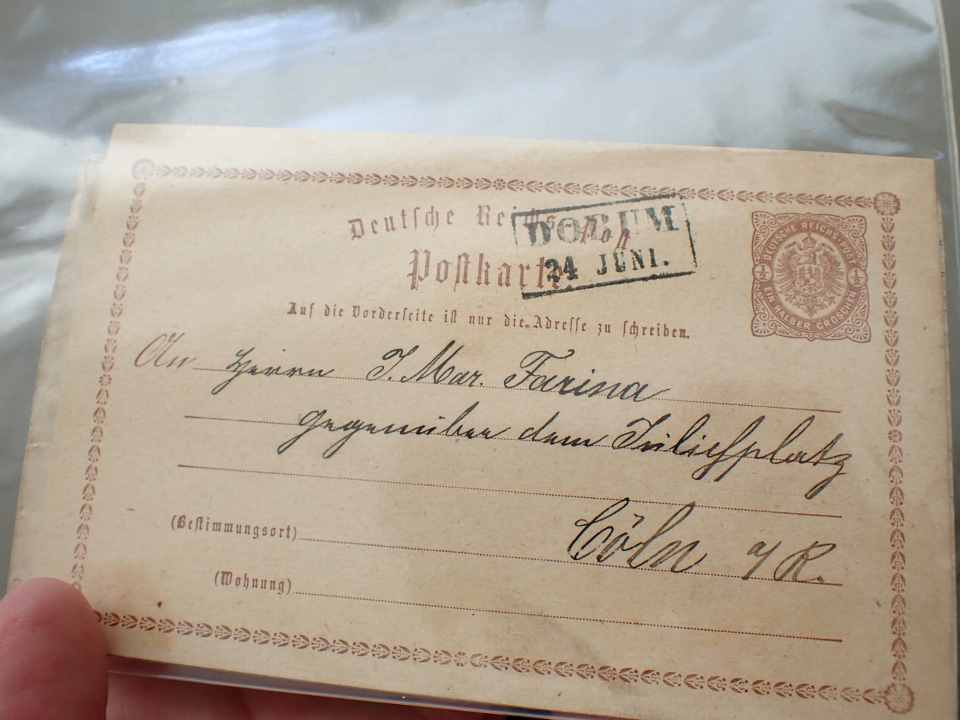 Deutsche Reichs-Post
DORUM
24 JUNI.
Postkarte.
DEUTSCHE REICHS-POST
½ ½
EIN HALBER GROSCHEN
Auf die Vorderseite ist nur die Adresse zu schreiben.
An Herrn J. Mar. Farina
gegenüber dem Jülichplatz
Cöln a/R.
(Bestimmungsort)
(Wohnung)